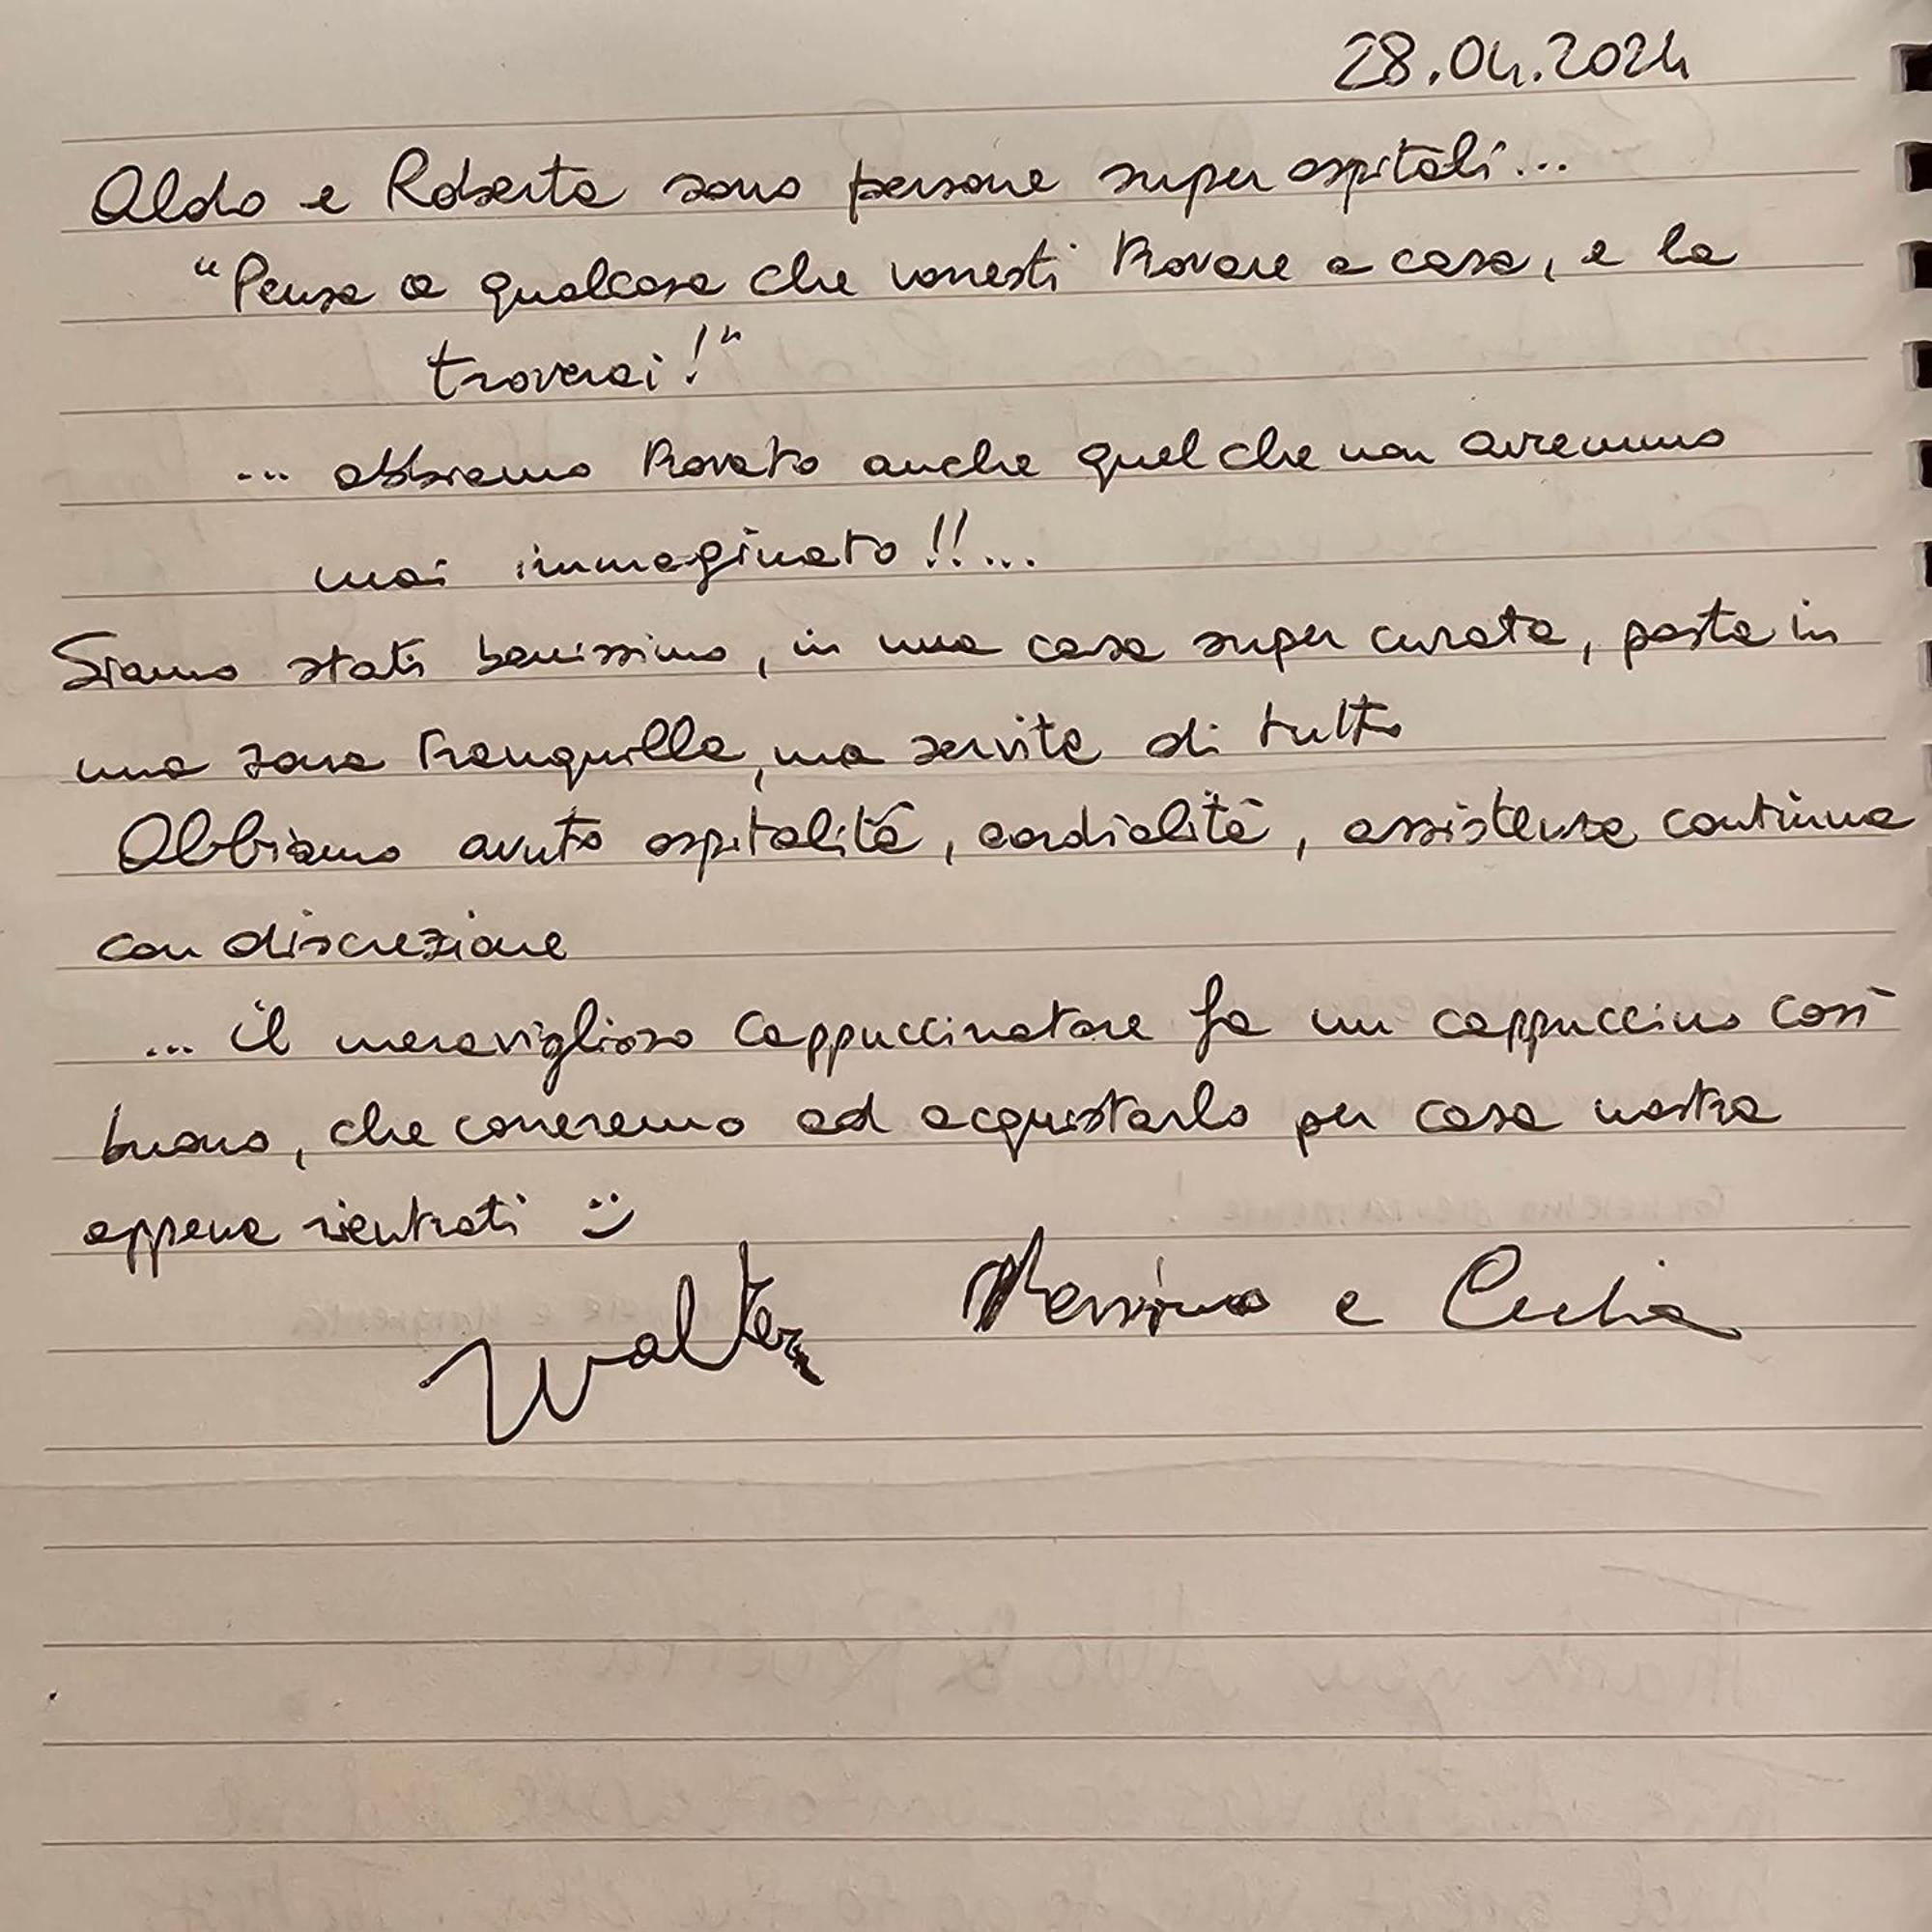 28.04.2024
Aldo e Roberta sono persone super ospitali...
"Pensa a qualcosa che vorresti trovare a casa, e la
troverai!"
... abbiamo trovato anche quel che non avremmo
mai immaginato!!...
Siamo stati benissimo, in una casa super curata, posta in
una zona tranquilla, ma servita di tutto
Abbiamo avuto ospitalità, cordialità, assistenza continua
con discrezione
... il meraviglioso Cappuccinatore fa un cappuccino così
buono, che correremo ad acquistarlo per casa nostra
appena rientrati :)
Massimo e Cecilia
Walter